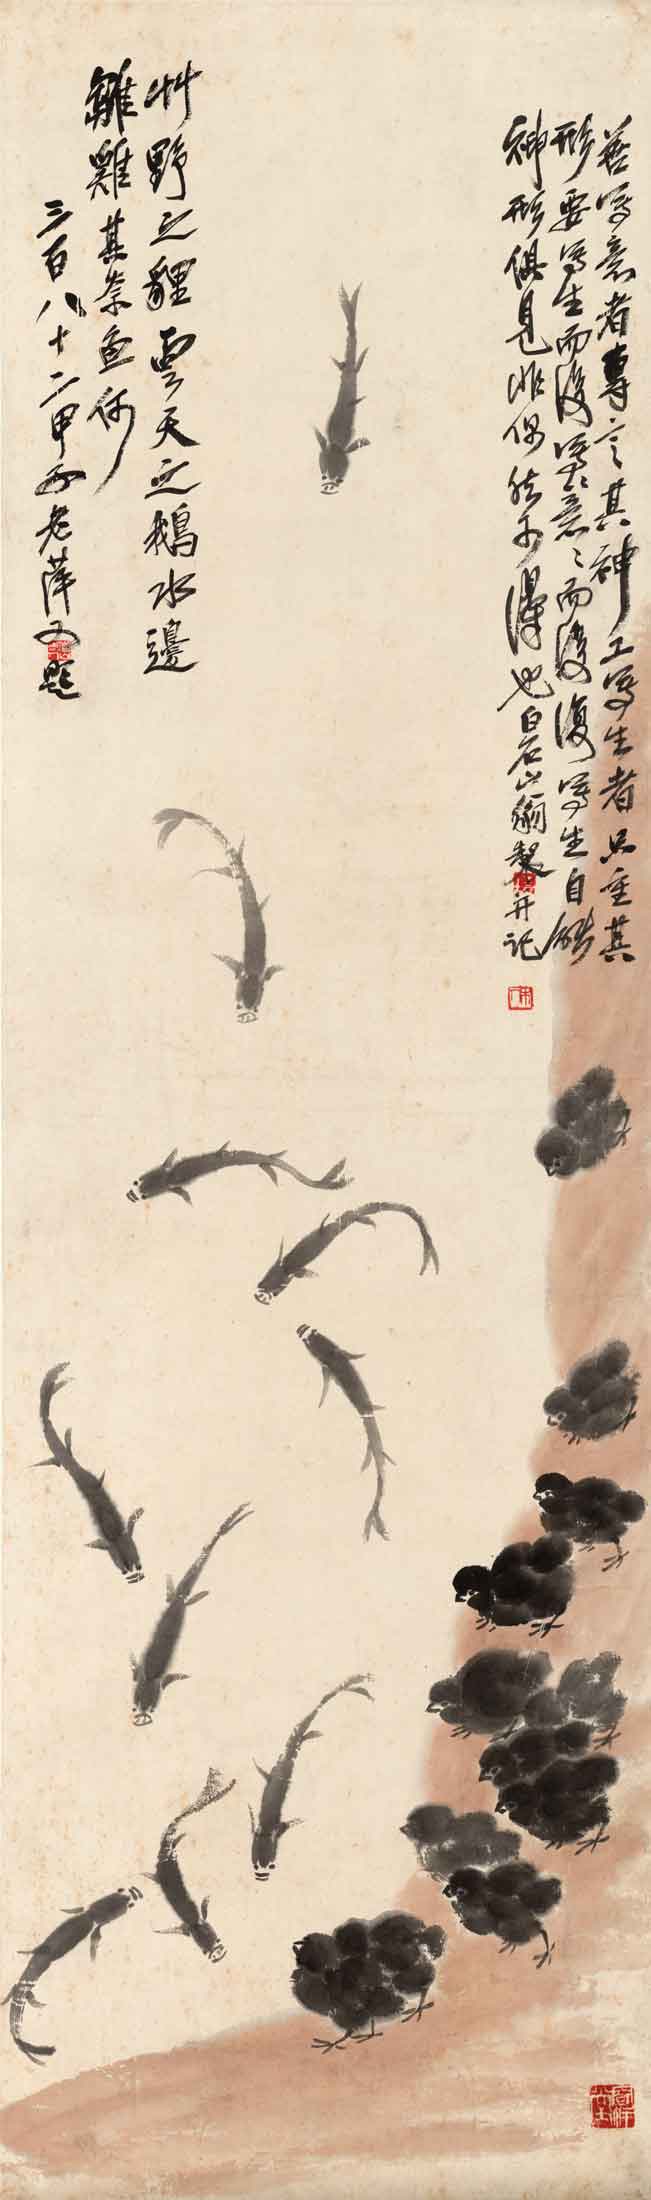 善寫意者專言其神工寫生者只重其
形要寫生而後寫〻意〻而後復寫生自能
神形俱見非偶然可得也白石山翁製并記
艸野之貍雲天之鵝水邊
雛雞其奈魚何
三百八十二甲子老萍又題